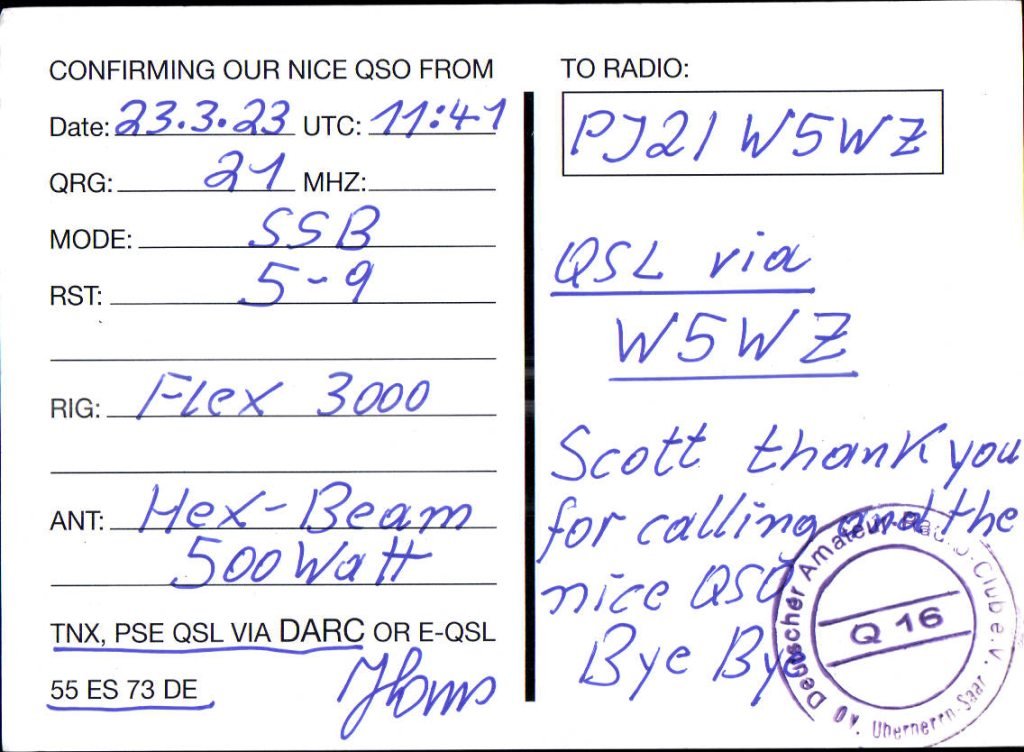 CONFIRMING OUR NICE QSO FROM
Date: 23.3.23 UTC: 11:41
QRG: 21 MHZ:
MODE: SSB
RST: 5-9
RIG: Flex 3000
ANT: Hex-Beam
500 Watt
TNX, PSE QSL VIA DARC OR E-QSL
55 ES 73 DE
TO RADIO:
PJ2/W5WZ
QSL via
W5WZ
Scott thank you
for calling and the
nice QSO
Bye Bye
Deutscher Amateur-Radio-Club e.V.
Q 16
OV. Überherrn-Saar